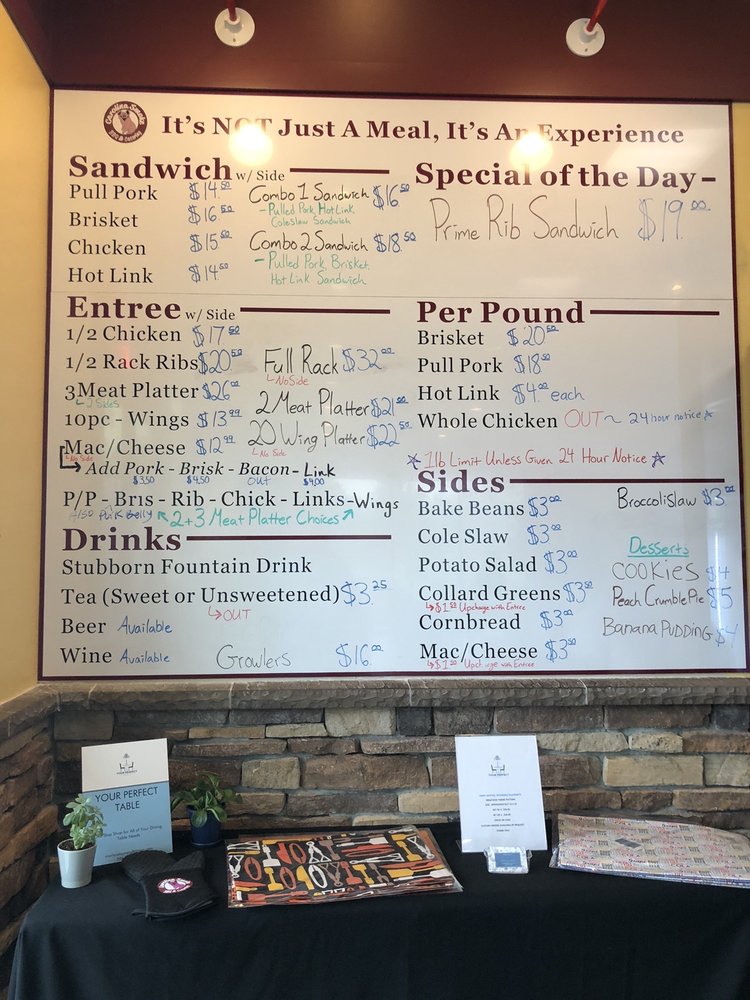 Carolina Smoke
It's NOT Just A Meal, It's An Experience
Sandwich w/ Side
Pull Pork $14.50
Brisket $16.50
Chicken $15.50
Hot Link $14.50
Combo 1 Sandwich $16.50
- Pulled Pork, Hot Link,
Coleslaw Sandwich
Combo 2 Sandwich $18.50
- Pulled Pork, Brisket,
Hot Link Sandwich
Special of the Day -
Prime Rib Sandwich $19.00
Entree w/ Side
1/2 Chicken $17.50
1/2 Rack Ribs $20.50
3 Meat Platter $26.00
2 Sides
10pc - Wings $13.99
Mac/Cheese $12.99
No Side
Full Rack $32.00
No Side
2 Meat Platter $21.00
20 Wing Platter $22.50
No Side
Add Pork - Brisk - Bacon - Link
$3.50 $4.50 OUT $4.00
P/P - Bris - Rib - Chick - Links - Wings
Also Pork Belly 2+3 Meat Platter Choices
Per Pound
Brisket $20.50
Pull Pork $18.50
Hot Link $4.00 each
Whole Chicken OUT ~ 24 hour notice
1lb Limit Unless Given 24 Hour Notice
Drinks
Stubborn Fountain Drink
Tea (Sweet or Unsweetened) $3.25
OUT
Beer Available
Wine Available
Growlers $16.00
Sides
Bake Beans $3.00
Cole Slaw $3.00
Potato Salad $3.00
Collard Greens $3.50
$1.50 Upcharge with Entree
Cornbread $3.00
Mac/Cheese $3.50
$1.50 Upcharge with Entree
Broccolislaw $3.00
Desserts
COOKIES $4
Peach Crumble Pie $5
Banana Pudding $4
YOUR PERFECT
YOUR PERFECT
TABLE